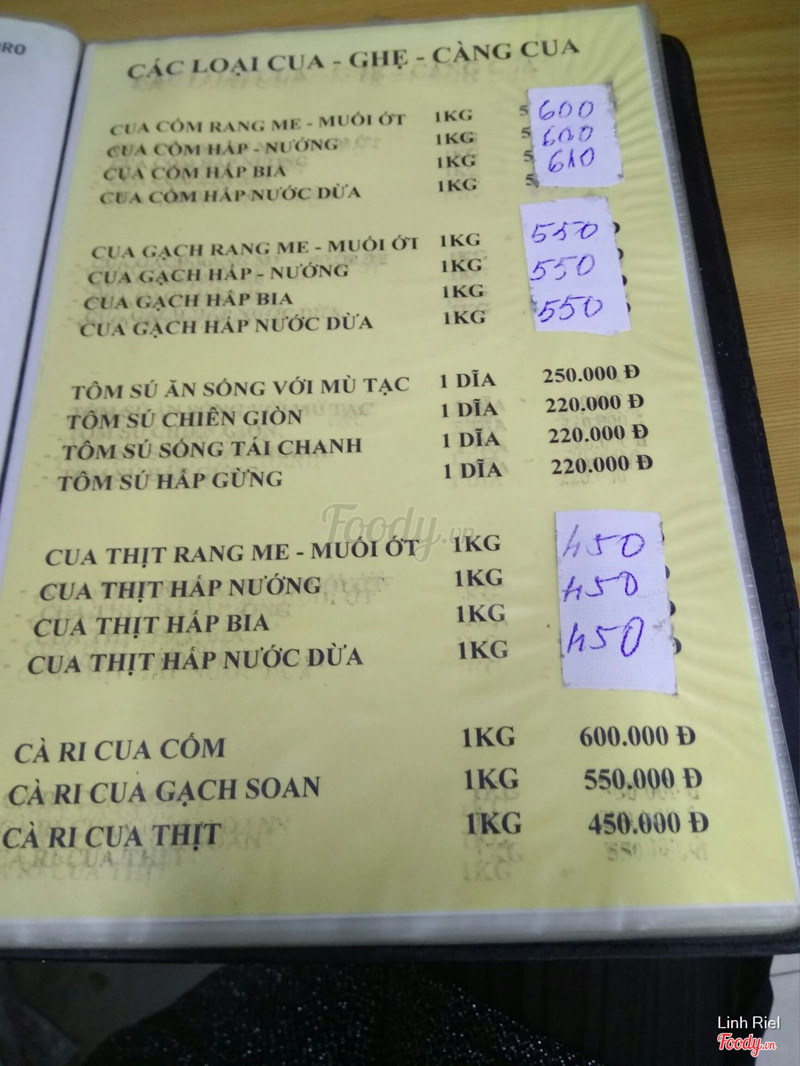 RO
CÁC LOẠI CUA - GHẸ - CÀNG CUA
CUA CỐM RANG ME - MUỐI ỚT 1KG 5 600
CUA CỐM HẤP - NƯỚNG 1KG 5 600
CUA CỐM HẤP BIA 1KG 5 610
CUA CỐM HẤP NƯỚC DỪA 1KG 5
CUA GẠCH RANG ME - MUỐI ỚT 1KG 550
CUA GẠCH HẤP - NƯỚNG 1KG 550
CUA GẠCH HẤP BIA 1KG 550
CUA GẠCH HẤP NƯỚC DỪA 1KG
TÔM SÚ ĂN SỐNG VỚI MÙ TẠC 1 DĨA 250.000 Đ
TÔM SÚ CHIÊN GIÒN 1 DĨA 220.000 Đ
TÔM SÚ SỐNG TÁI CHANH 1 DĨA 220.000 Đ
TÔM SÚ HẤP GỪNG 1 DĨA 220.000 Đ
Foody.vn
CUA THỊT RANG ME - MUỐI ỚT 1KG 450
CUA THỊT HẤP NƯỚNG 1KG 450
CUA THỊT HẤP BIA 1KG 450
CUA THỊT HẤP NƯỚC DỪA 1KG Đ
CÀ RI CUA CỐM 1KG 600.000 Đ
CÀ RI CUA GẠCH SOAN 1KG 550.000 Đ
CÀ RI CUA THỊT 1KG 450.000 Đ
Linh Riel
Foody.vn